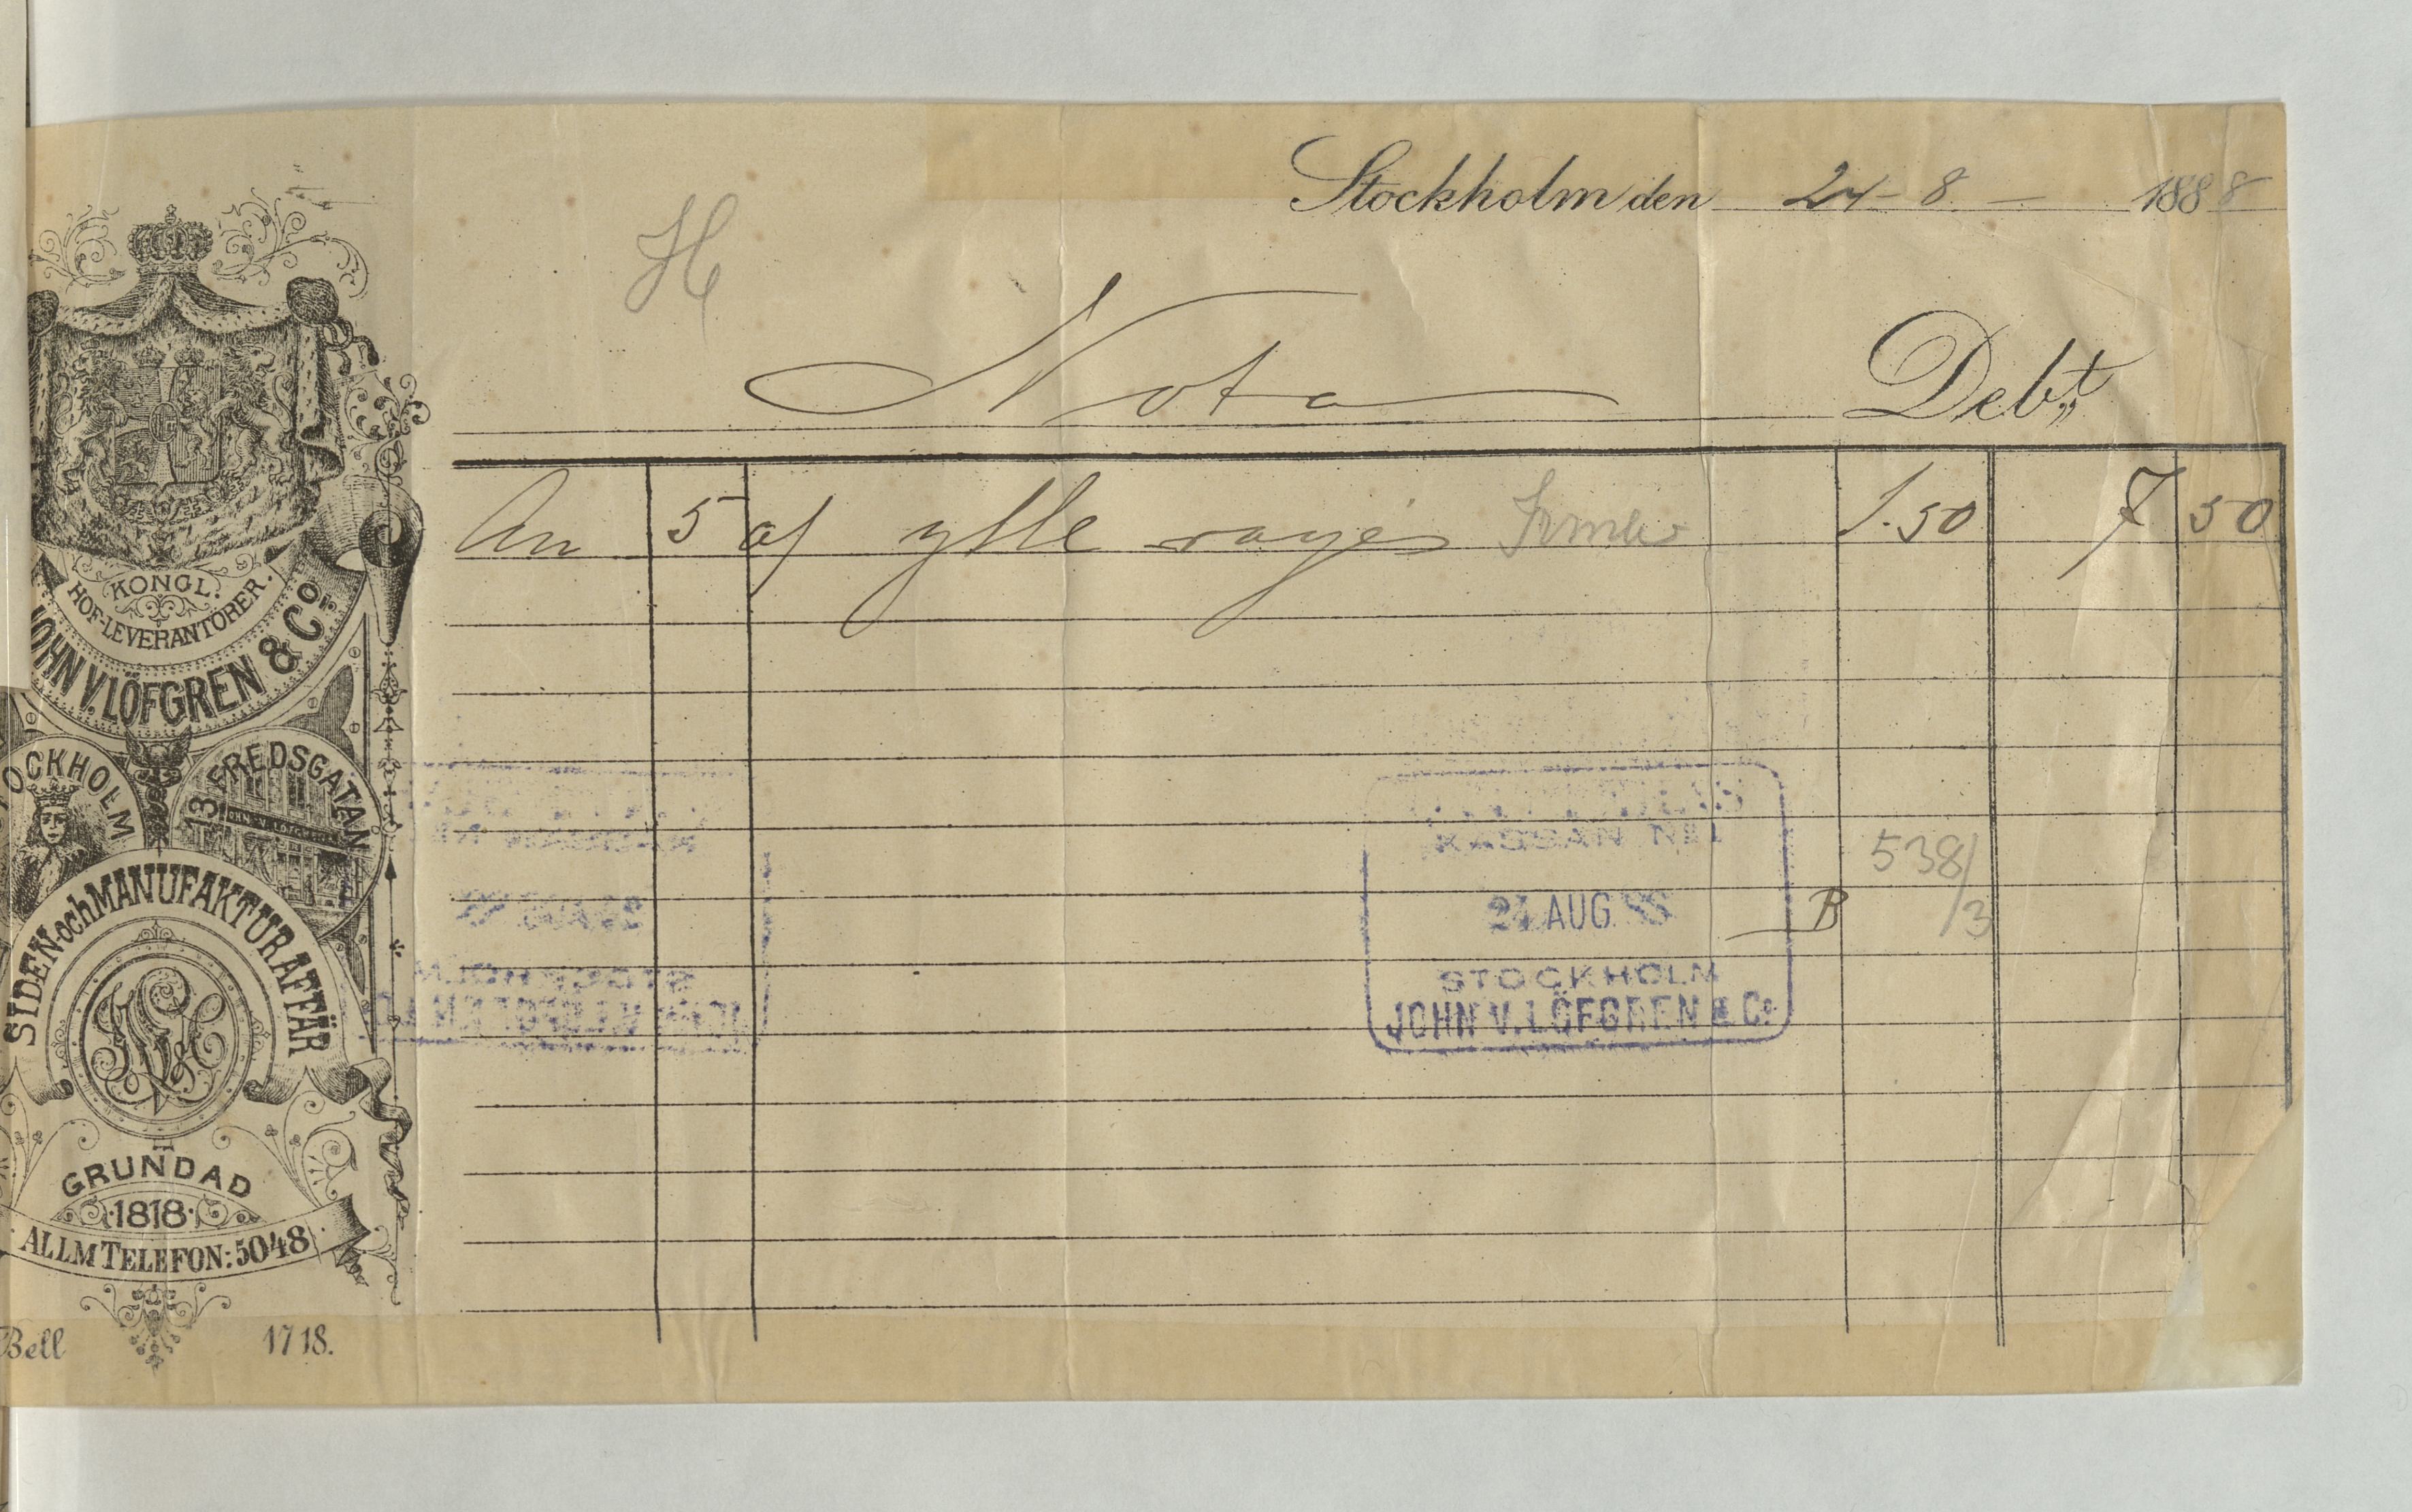 Stockholm den 24-8 - 1888
H
Nota Debt
KONGL.
HOF-LEVERANTÖRER.
JOHN V. LÖFGREN & Co
STOCKHOLM
13 FREDSGATAN
SIDEN-och MANUFAKTURAFFÄR
GRUNDAD
1818
ALLM TELEFON: 5048
Bell 1718.
An 5 af ylle rayés 1.50 7 50
538/3
B
KASSAN N:1
24 AUG 88
STOCKHOLM
JOHN V. LÖFGREN & Co